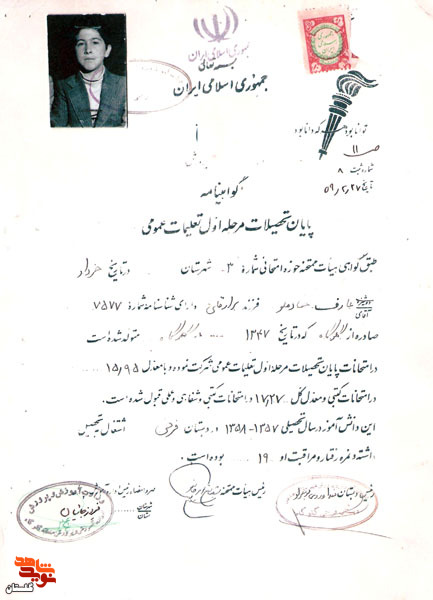 جمهوری اسلامی ایران
بسمه تعالی
جمهوری اسلامی ایران
توانا بود هر که دانا بود
شماره ثبت ۸
تاریخ ۵۹/۲/۲۷
گواهینامه
پایان تحصیلات مرحله اول تعلیمات عمومی
طبق گواهی هیأت ممتحنه حوزه امتحانی شماره ۳ شهرستان در تاریخ خرداد
آقای عارف فرزند دارای شناسنامه شماره ۷۵۷۷
صادره از گلوگاه که در تاریخ ۱۳۴۷ در گلوگاه متولد شده است
در امتحانات پایان تحصیلات مرحله اول تعلیمات عمومی شرکت نموده و با معدل ۱۵/۹۵
در امتحانات کتبی و معدل کل ۱۷/۲۷ در امتحانات کتبی و شفاهی و عملی قبول شده است.
این دانش آموز در سال تحصیلی ۱۳۵۷-۱۳۵۸ در دبستان فرخی اشتغال به تحصیل
داشته و نمره رفتار و مراقبت او ۱۹ بوده است.
رئیس دبستان
رئیس هیأت ممتحنه
مهر و امضاء رئیس اداره آموزش
نوید شاهد
گلستان